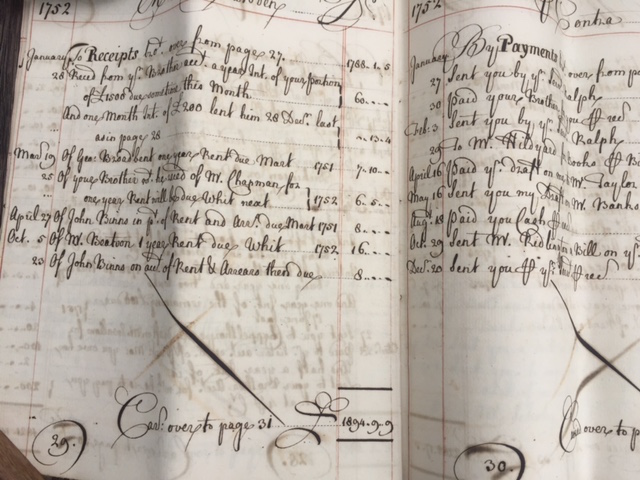 1752
January To Receipts bt. over from page 27. 1788.1.5
28 Recd from yr. Brother a year Int. of your portion
of £1500 due this Month 60...
And one Month Int. of £200 lent him 28 Decr. last
as in page 28 ..13.4
Mar. 19 Of Geo: Broadbent one year Rent due Mart 1751 7.10..
25 Of your Brother of Mr. Chapman for
one year Rent will be due Whit next 1752 6.5..
April 27 Of John Binns in pt. of Rent and Arr. due Mart 1751 8...
Oct. 5 Of Mr. Beatson 1 year Rent due Whit 1752 16...
23 Of John Binns on acct. of Rent & Arrears then due 8...
Card. over to page 31 £1894.9.9
29.
1752
Contra
January By Payments over from p
27 Sent you by yr. Ralph
30 paid your Brother recd
Feb: 3 Sent you by yr. Ralph
To Mr. Books
April 16 Paid yr. draft on Mr. Taylor
May 16 Sent you my Draft on Mr. Banks
Aug. 18 Paid you Cash
Oct. 29 Sent Mr. Bill on yr.
Decr. 20 Sent you yr. and recd
over to p
30.